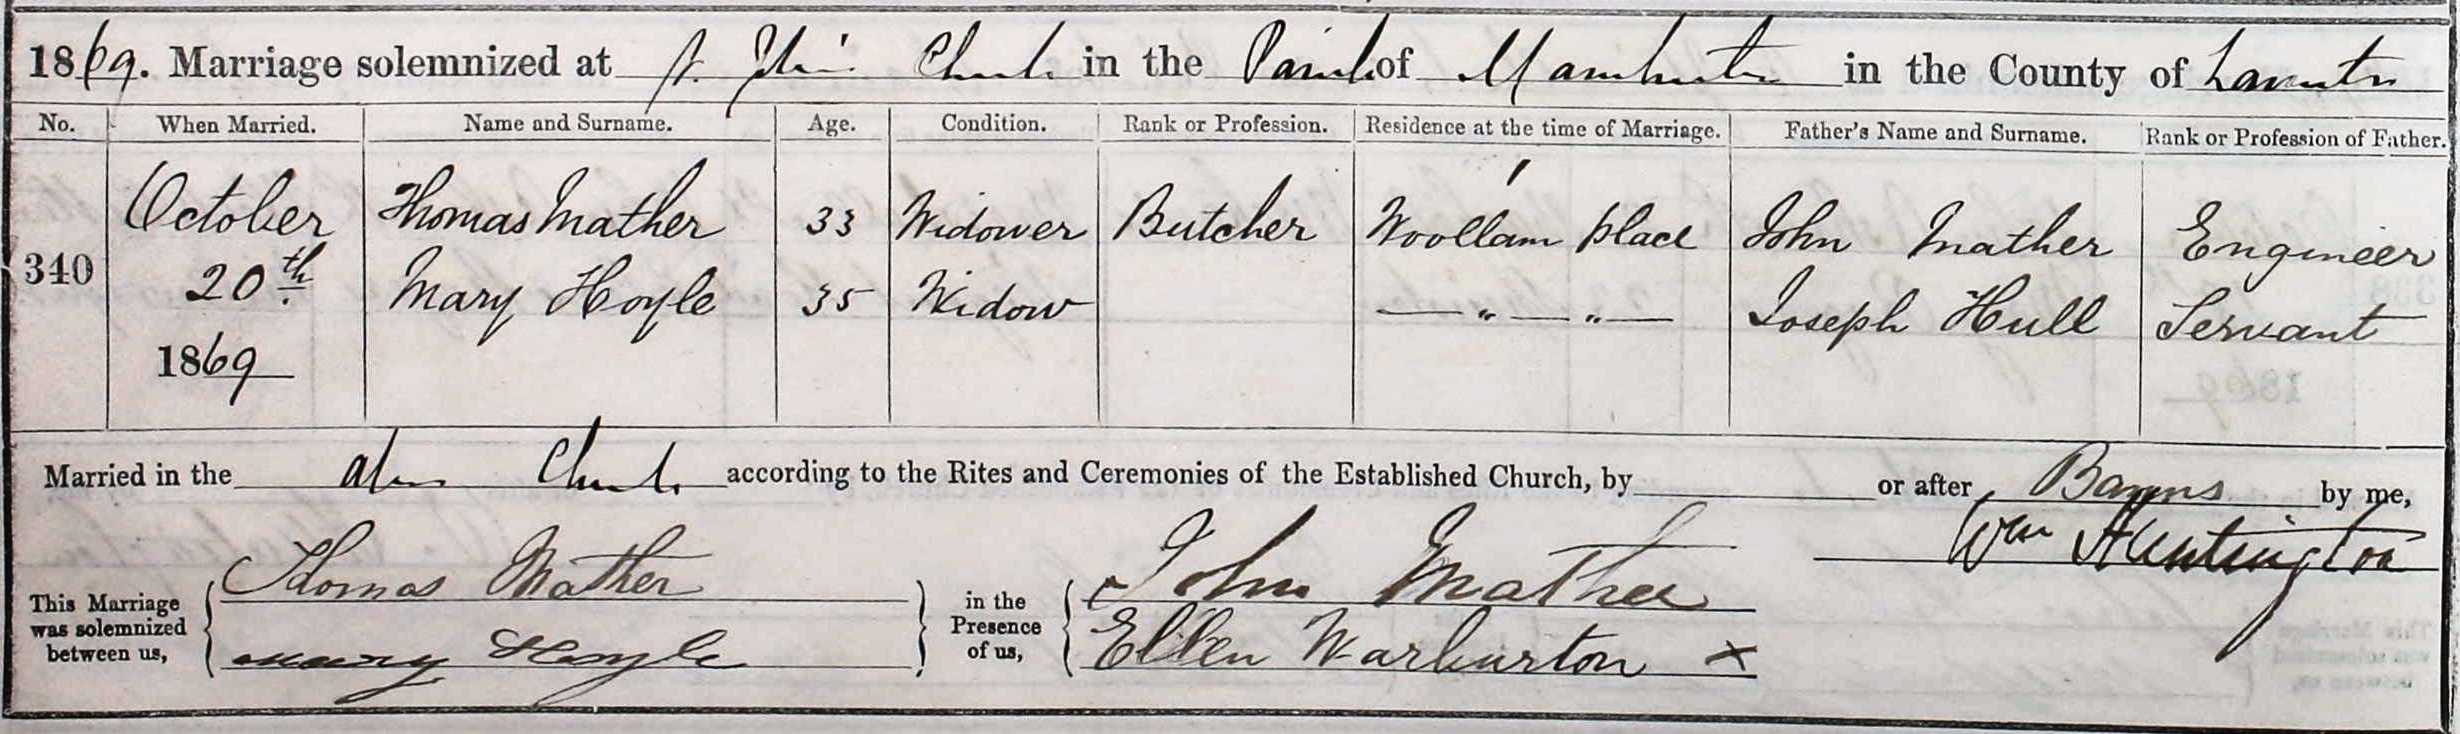 1869. Marriage solemnized at St. John's Church in the Parish of Manchester in the County of Lancaster
No. When Married. Name and Surname. Age. Condition. Rank or Profession. Residence at the time of Marriage. Father's Name and Surname. Rank or Profession of Father.
October Thomas Mather 33 Widower Butcher Woollam place John Mather Engineer
340 20th Mary Hoyle 35 Widow — " — " — Joseph Hull Servant
1869
Married in the above Church according to the Rites and Ceremonies of the Established Church, by or after Banns by me,
Wm Huntington
This Marriage was solemnized between us,
Thomas Mather
Mary Hoyle
in the Presence of us,
John Mather
Ellen Warburton x